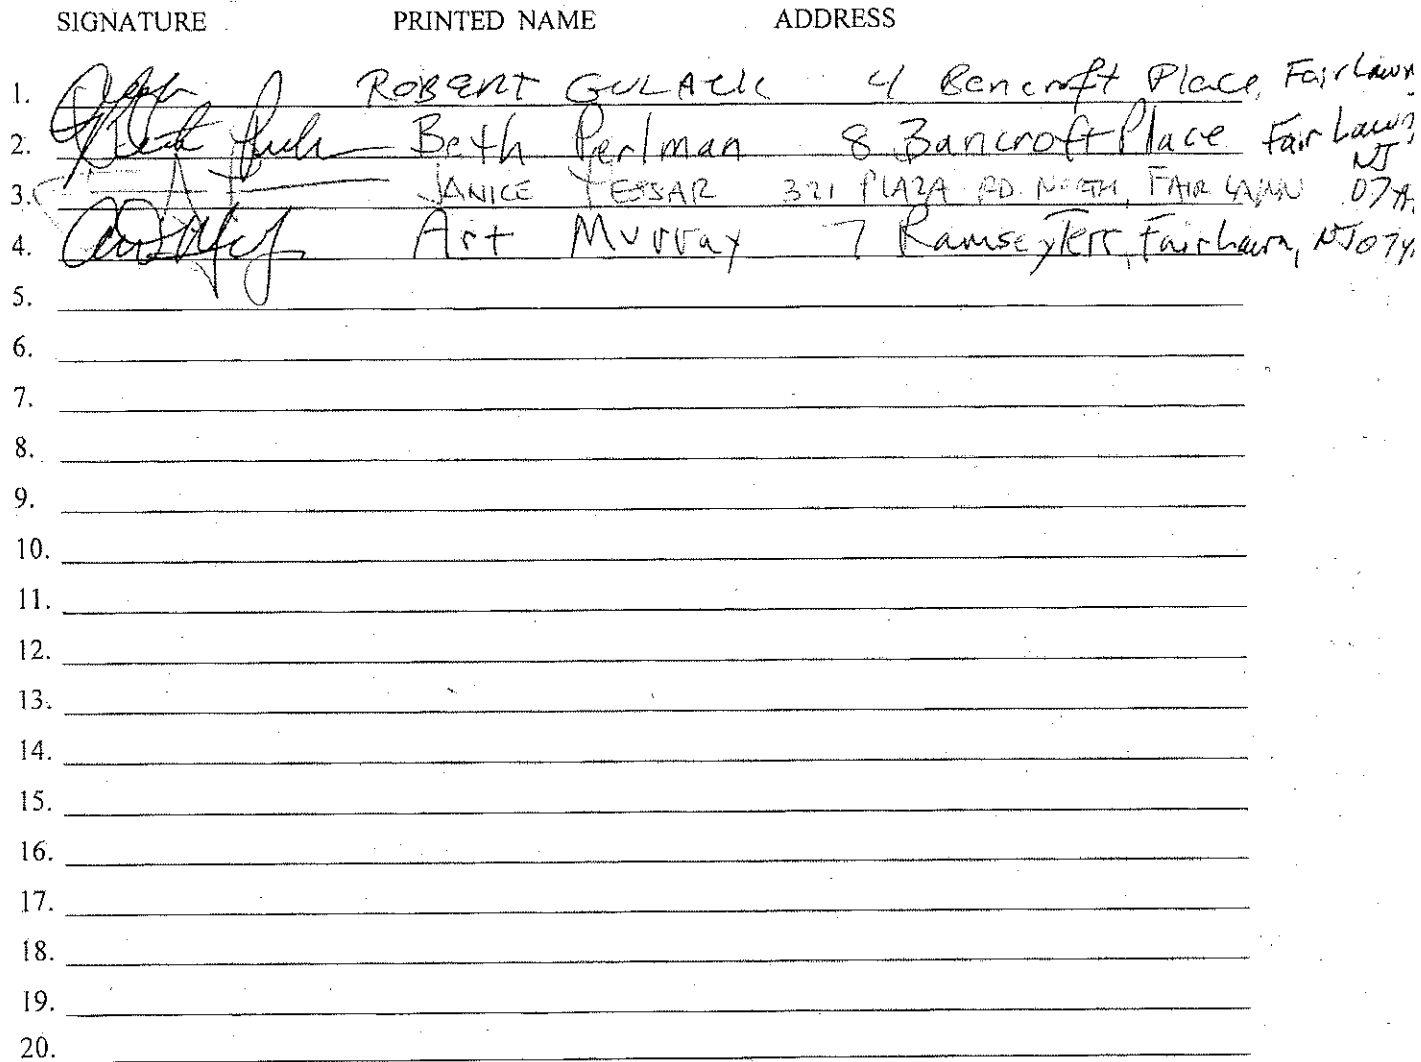 SIGNATURE PRINTED NAME ADDRESS
1. ROBERT GULACK 4 Bancroft Place, Fair Lawn
2. Beth Perlman 8 Bancroft Place Fair Lawn NJ
3. JANICE TESSAR 321 PLAZA RD NORTH, FAIR LAWN 074
4. Art Murray 7 Ramsey Terr, Fair Lawn, NJ 074
5.
6.
7.
8.
9.
10.
11.
12.
13.
14.
15.
16.
17.
18.
19.
20.